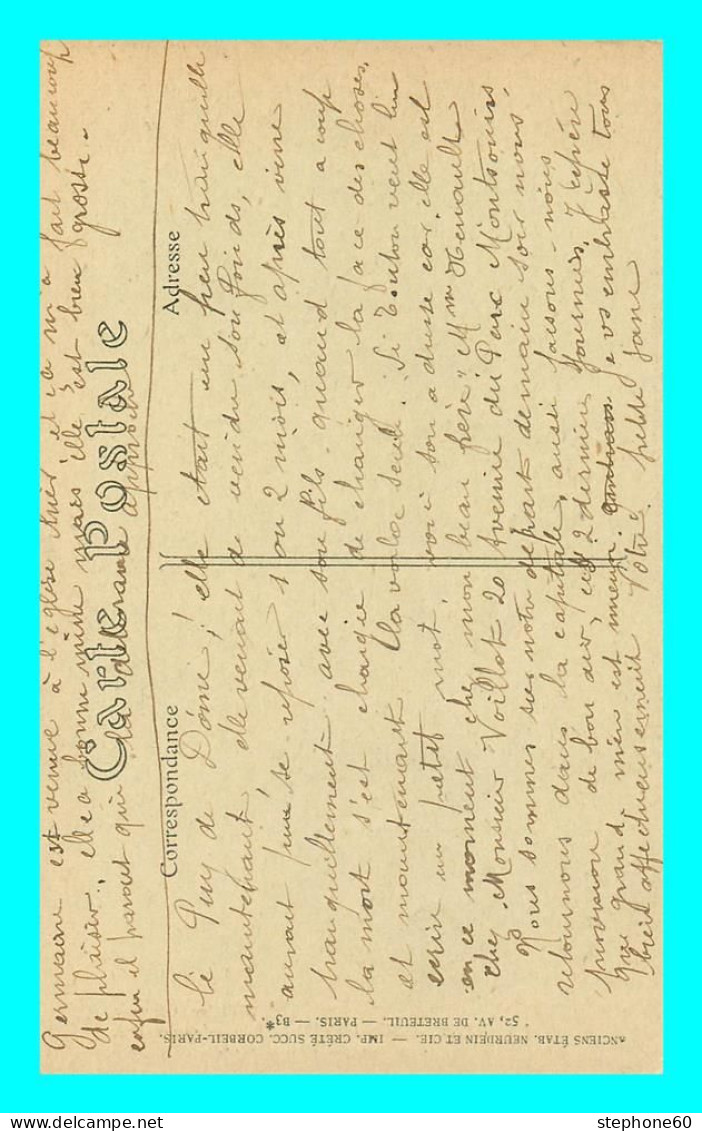 Germaine est venue à l'église hier et ça m'a fait beaucoup
de plaisir, elle a bonne mine mais elle est bien grosse.
enfin il parait que la délivrance approche
Carte Postale
Correspondance
Adresse
le Puy de Dôme! elle était un peu tranquille
maintenant, elle venait de vendre son fonds, elle
aurait pu se reposer 1 ou 2 mois, et après vivre
tranquillement avec son fils. quand tout a coup
la mort s'est chargée de changer la face des choses.
et maintenant la voilà seule. Si Tonton veut lui
ecrire un petit mot, voici son adresse car elle est
en ce moment chez mon beau frère "Mme Henault
chez Monsieur Voillot 20 avenue du Parc Montsouris.
Nous sommes sur notre départ demain soir nous
retournons dans la capitale, aussi faisons-nous
provision de bon air, ces 2 derniers journées. J'espère
que grand'mère est mieux. je vs embrasse tous
bien affectueusement Votre petite Jane
ANCIENS ÉTAB. NEURDEIN ET CIE. — IMP. CRÉTÉ SUCC. CORBEIL-PARIS.
52, AV. DE BRETEUIL. — PARIS. — B3*.
stephone60